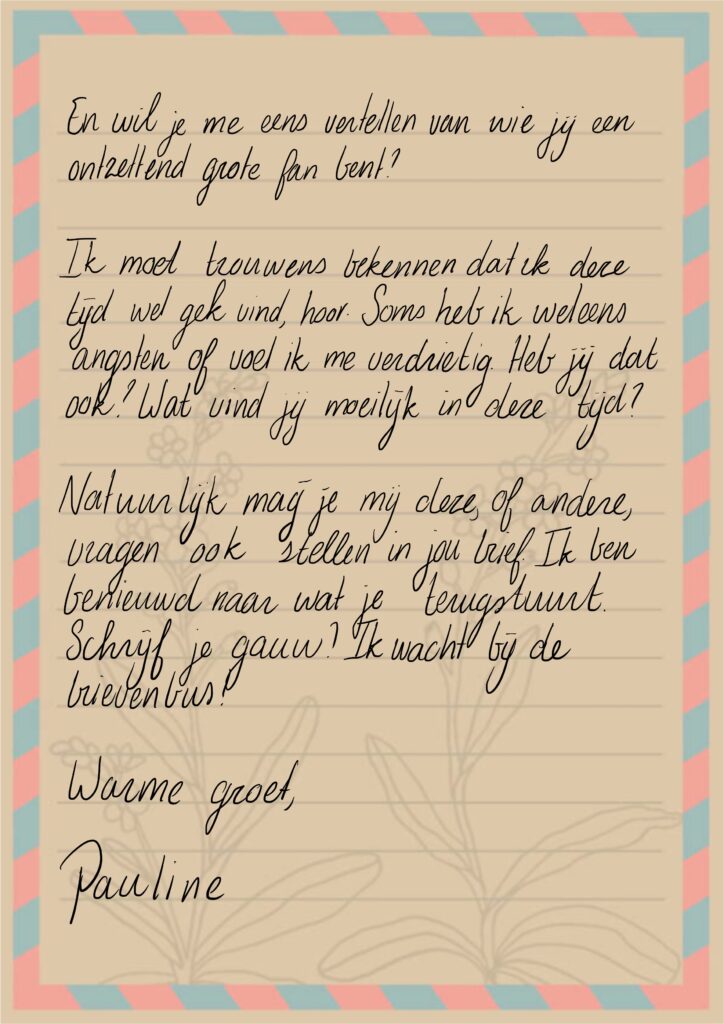 En wil je me eens vertellen van wie jij een
ontzettend grote fan bent?
Ik moet trouwens bekennen dat ik deze
tijd wel gek vind, hoor. Soms heb ik weleens
angsten of voel ik me verdrietig. Heb jij dat
ook? Wat vind jij moeilijk in deze tijd?
Natuurlijk mag je mij deze, of andere,
vragen ook stellen in jou brief. Ik ben
benieuwd naar wat je terugstuurt.
Schrijf je gauw? Ik wacht bij de
brievenbus!
Warme groet,
Pauline